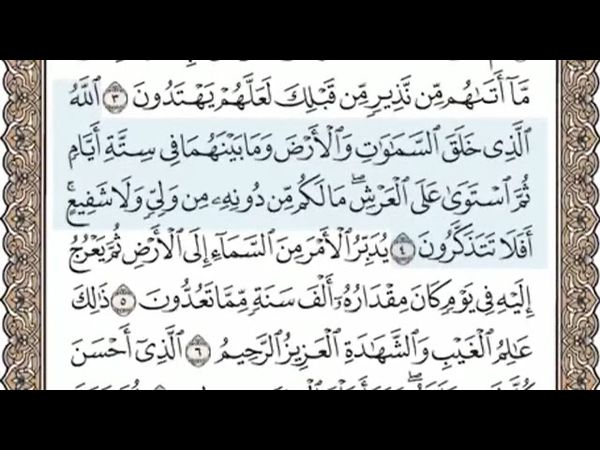 مَّآ أَتَىٰهُم مِّن نَّذِيرٍ مِّن قَبْلِكَ لَعَلَّهُمْ يَهْتَدُونَ ٣ ٱللَّهُ
ٱلَّذِى خَلَقَ ٱلسَّمَٰوَٰتِ وَٱلْأَرْضَ وَمَا بَيْنَهُمَا فِى سِتَّةِ أَيَّامٍ
ثُمَّ ٱسْتَوَىٰ عَلَى ٱلْعَرْشِ ۖ مَا لَكُم مِّن دُونِهِۦ مِن وَلِىٍّ وَلَا شَفِيعٍ ۚ
أَفَلَا تَتَذَكَّرُونَ ٤ يُدَبِّرُ ٱلْأَمْرَ مِنَ ٱلسَّمَآءِ إِلَى ٱلْأَرْضِ ثُمَّ يَعْرُجُ
إِلَيْهِ فِى يَوْمٍ كَانَ مِقْدَارُهُۥٓ أَلْفَ سَنَةٍ مِّمَّا تَعُدُّونَ ٥ ذَٰلِكَ
عَٰلِمُ ٱلْغَيْبِ وَٱلشَّهَٰدَةِ ٱلْعَزِيزُ ٱلرَّحِيمُ ٦ ٱلَّذِىٓ أَحْسَنَ